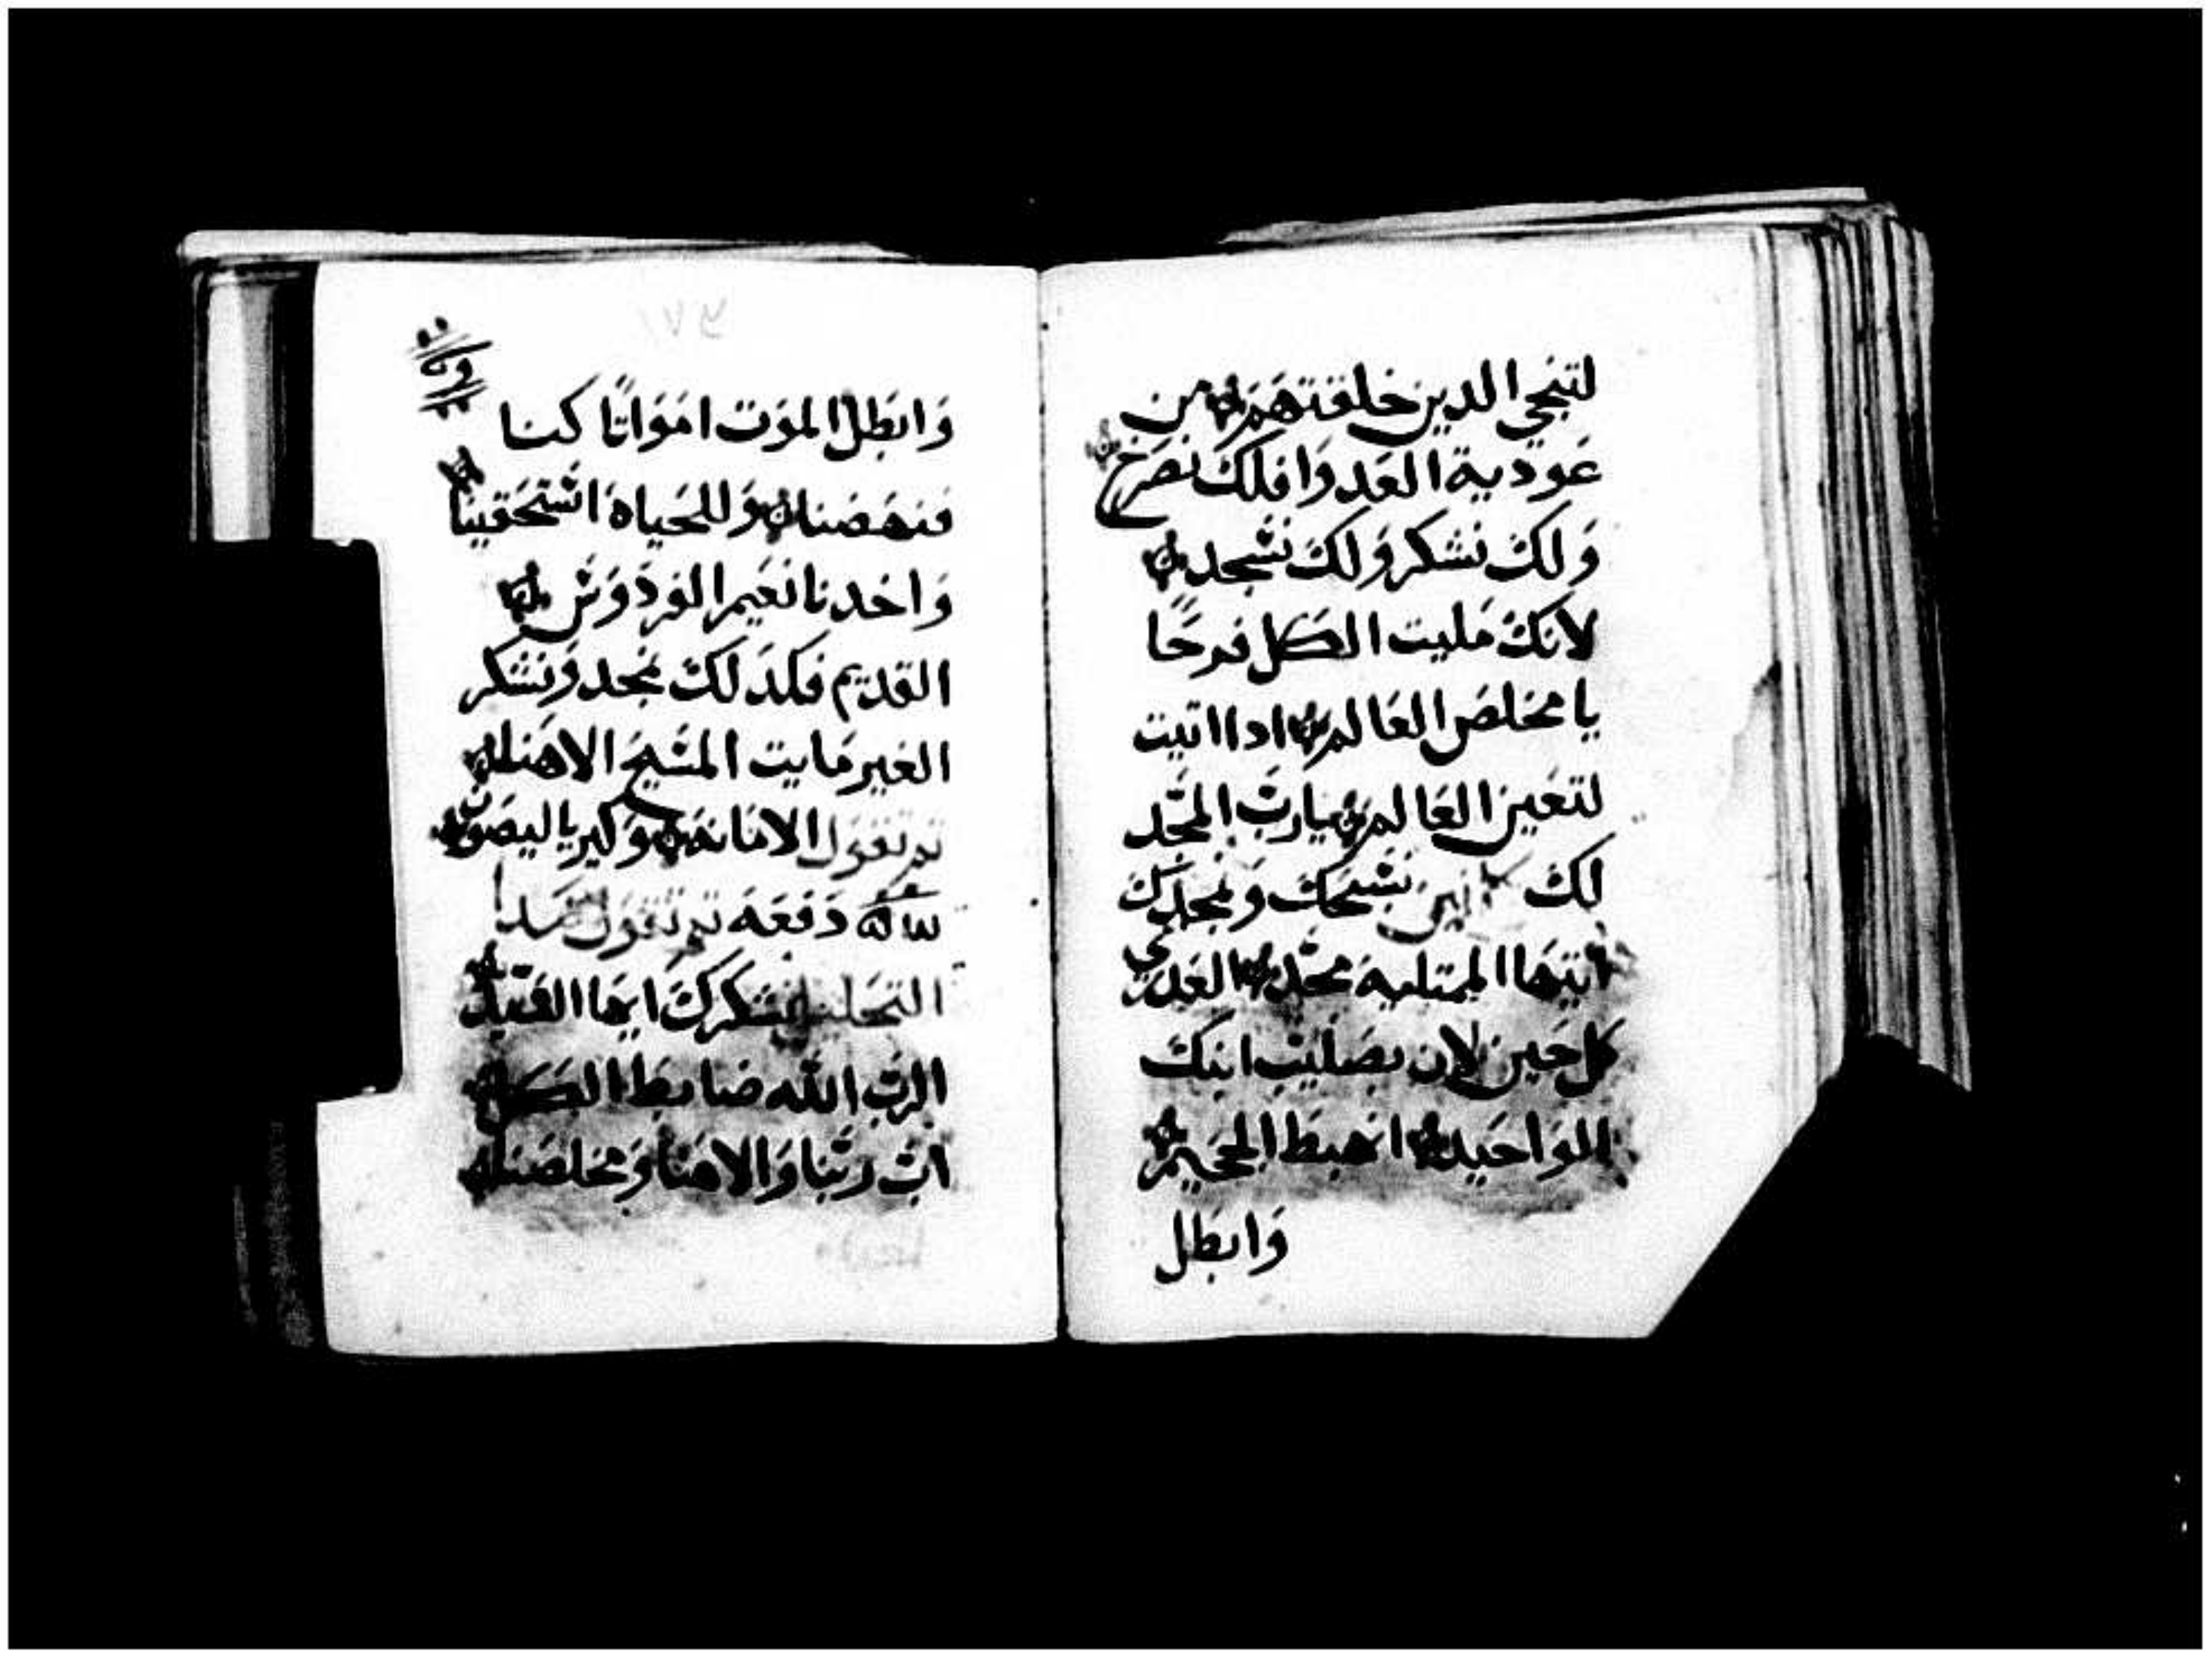 لتنجي الدين خلقتهم من
عودية العدو افلك نصرخ
ولك نشكر ولك نسجد
لانك مليت الكل فرحًا
يا مخلص العالم ادا اتيت
لتعين العالم يارب المجد
لك نسبحك ونمجدك
ايتها الممتليه مجد العدري
كل حين لان بصليب ابنك
الواحيد اهبط الجحيم
وابطل
وابطل الموت امواتًا كنا
فنهضنا وللحياه استحقينا
واخدنا نعيم الفردوس
القديم فكدلك نمجد ونشكر
الغير مايت المسيح الاهنا
تم تقول الامانه وكيرياليصون
دفعه تم تقول هدا
التحليل نشكرك ايها السيد
الرب الله ضابط الكل
اب ربنا والاهنا ومخلصنا